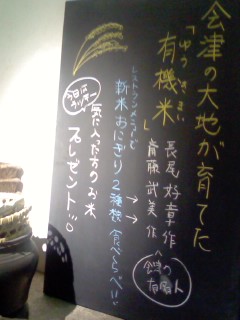 会津の大地が育てた
「有機米」
ゆうきまい
長尾好章作
斎藤武美作
会津の
レストランメニューで
新米おにぎり2種類食べくらべ
今日はラッキー
気に入った方のお米
プレゼント!!